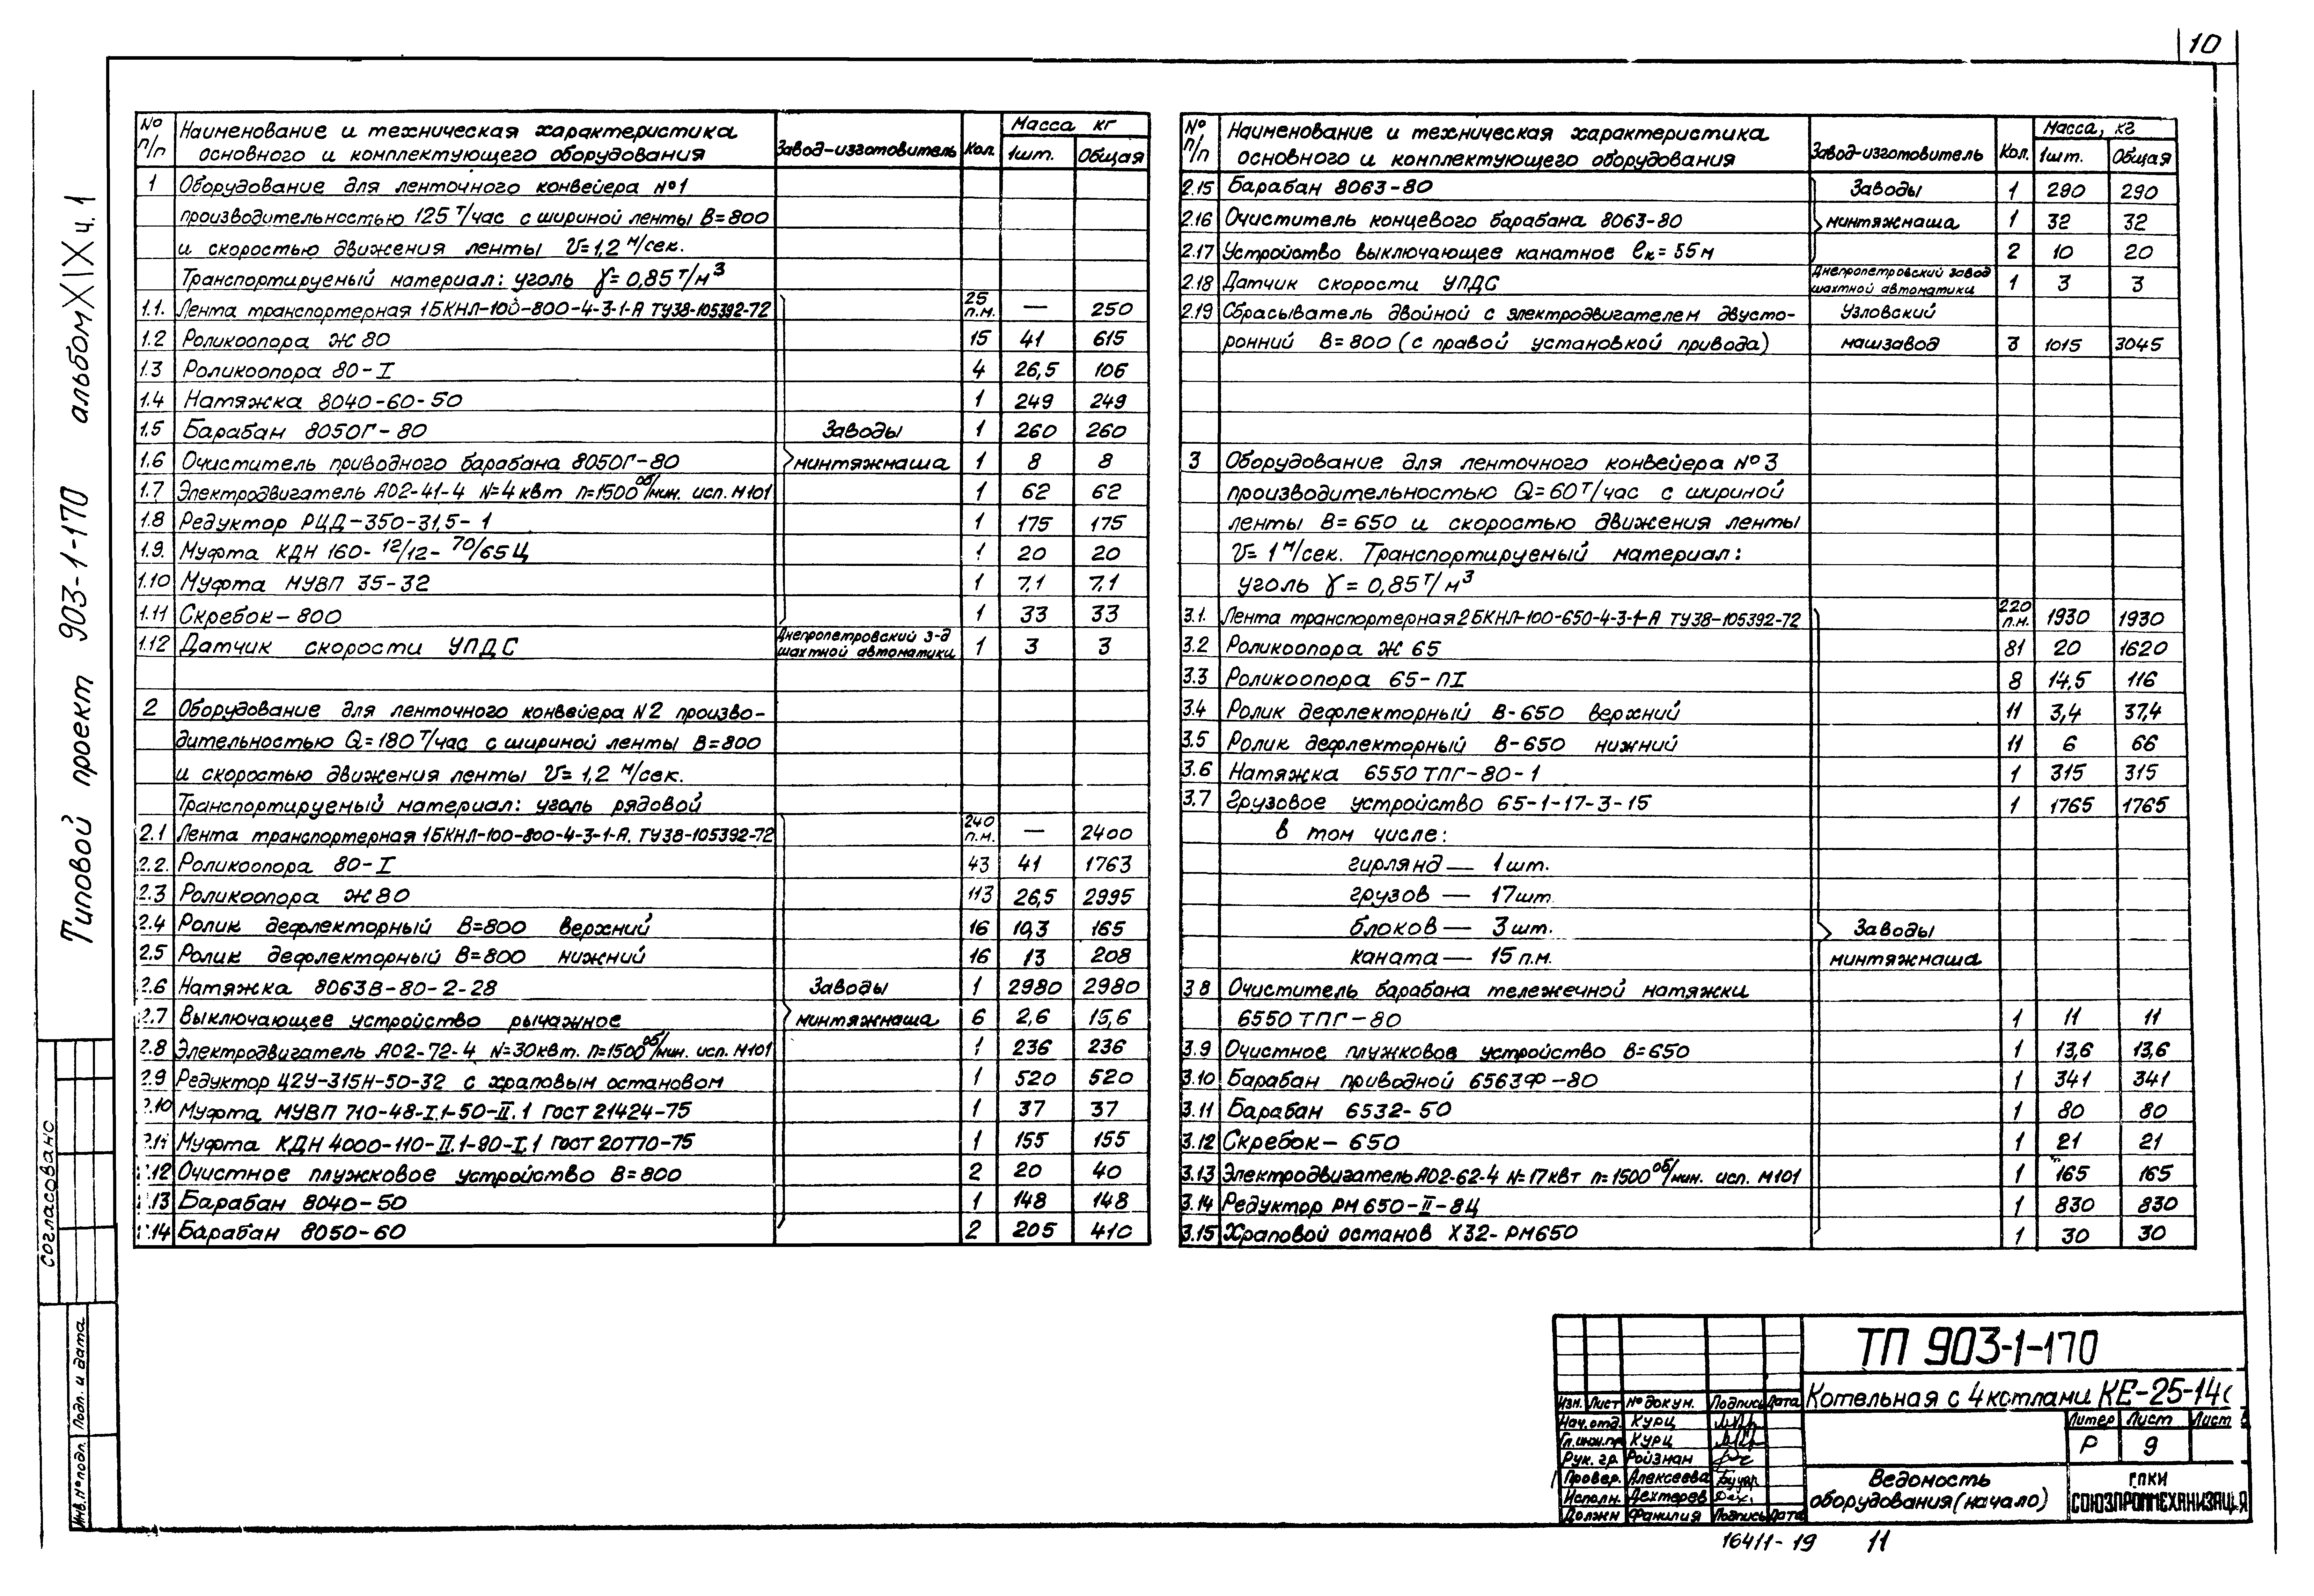 10
Типовой проект 903-1-170 альбом XIX ч. 1
№ п/п Наименование и техническая характеристика основного и комплектующего оборудования Завод-изготовитель Кол. Масса кг 1шт. Общая
1 Оборудование для ленточного конвейера №1
производительностью 125 т/час с шириной ленты В=800
и скоростью движения ленты V=1,2 м/сек.
Транспортируемый материал: уголь γ=0,85 т/м³
1.1. Лента транспортерная 1БКНЛ-100-800-4-3-1-А ТУ38-105392-72 25 п.м. — 250
1.2 Роликоопора Ж 80 15 41 615
1.3 Роликоопора 80-I 4 26,5 106
1.4 Натяжка 8040-60-50 1 249 249
1.5 Барабан 8050Г-80 Заводы 1 260 260
1.6 Очиститель приводного барабана 8050Г-80 минтяжмаша 1 8 8
1.7 Электродвигатель АО2-41-4 N=4 квт n=1500 об/мин. исп. М101 1 62 62
1.8 Редуктор РЦД-350-31,5-1 1 175 175
1.9. Муфта КДН 160-12/12-70/65Ц 1 20 20
1.10 Муфта МУВП 35-32 1 7,1 7,1
1.11 Скребок-800 1 33 33
1.12 Датчик скорости УПДС Днепропетровский з-д шахтной автоматики 1 3 3
2 Оборудование для ленточного конвейера N2 произво-
дительностью Q=180 т/час с шириной ленты В=800
и скоростью движения ленты V=1,2 м/сек.
Транспортируемый материал: уголь рядовой
2.1 Лента транспортерная 1БКНЛ-100-800-4-3-1-А. ТУ38-105392-72 240 п.м. — 2400
2.2. Роликоопора 80-I 43 41 1763
2.3 Роликоопора Ж80 113 26,5 2995
2.4 Ролик дефлекторный В=800 верхний 16 10,3 165
2.5 Ролик дефлекторный В=800 нижний 16 13 208
2.6 Натяжка 8063В-80-2-28 Заводы 1 2980 2980
2.7 Выключающее устройство рычажное минтяжмаша 6 2,6 15,6
2.8 Электродвигатель АО2-72-4 N=30квт. n=1500 об/мин. исп. М101 1 236 236
2.9 Редуктор Ц2У-315Н-50-32 с храповым остановом 1 520 520
2.10 Муфта МУВП 710-48-I.1-50-II.1 ГОСТ 21424-75 1 37 37
2.11 Муфта КДН 4000-110-II.1-90-I.1 ГОСТ 20770-75 1 155 155
2.12 Очистное плужковое устройство В=800 2 20 40
2.13 Барабан 8040-50 1 148 148
2.14 Барабан 8050-60 2 205 410
№ п/п Наименование и техническая характеристика основного и комплектующего оборудования Завод-изготовитель Кол. Масса, кг 1шт. Общая
2.15 Барабан 8063-80 Заводы 1 290 290
2.16 Очиститель концевого барабана 8063-80 минтяжмаша 1 32 32
2.17 Устройство выключающее канатное ℓк=55м 2 10 20
2.18 Датчик скорости УПДС Днепропетровский завод шахтной автоматики 1 3 3
2.19 Сбрасыватель двойной с электродвигателем двусто- Узловский
ронний В=800 (с правой установкой привода) машзавод 3 1015 3045
3 Оборудование для ленточного конвейера №3
производительностью Q=60 т/час с шириной
ленты В=650 и скоростью движения ленты
V=1 м/сек. Транспортируемый материал:
уголь γ=0,85 т/м³
3.1. Лента транспортерная 2БКНЛ-100-650-4-3-1-А ТУ38-105392-72 220 п.м. 1930 1930
3.2 Роликоопора Ж 65 81 20 1620
3.3 Роликоопора 65-ПI 8 14,5 116
3.4 Ролик дефлекторный В-650 верхний 11 3,4 37,4
3.5 Ролик дефлекторный В-650 нижний 11 6 66
3.6 Натяжка 6550 ТПГ-80-1 1 315 315
3.7 Грузовое устройство 65-1-17-3-15 1 1765 1765
в том числе:
гирлянд — 1шт.
грузов — 17шт.
блоков — 3шт. Заводы
каната — 15 п.м. минтяжмаша
3 8 Очиститель барабана тележечной натяжки
6550 ТПГ-80 1 11 11
3.9 Очистное плужковое устройство В=650 1 13,6 13,6
3.10 Барабан приводной 6563Ф-80 1 341 341
3.11 Барабан 6532-50 1 80 80
3.12 Скребок-650 1 21 21
3.13 Электродвигатель АО2-62-4 N=17квт n=1500 об/мин. исп. М101 1 165 165
3.14 Редуктор РМ 650-II-8Ц 1 830 830
3.15 Храповой останов Х32-РМ650 1 30 30
Согласовано
Инв. № подл. Подп. и дата
ТП 903-1-170
Котельная с 4 котлами КЕ-25-14с
Изм. Лист № докум. Подпись Дата
Нач. отд. Курц
Гл. инж. пр Курц
Рук. гр. Ройзман
Провер. Алексеева
Исполн. Дехтерев
Должн Фамилия Подпись Дата
Литер Лист Лист
Р 9
Ведомость
оборудования (начало)
ГПКИ
СОЮЗПРОММЕХАНИЗАЦИЯ
16411-19 11